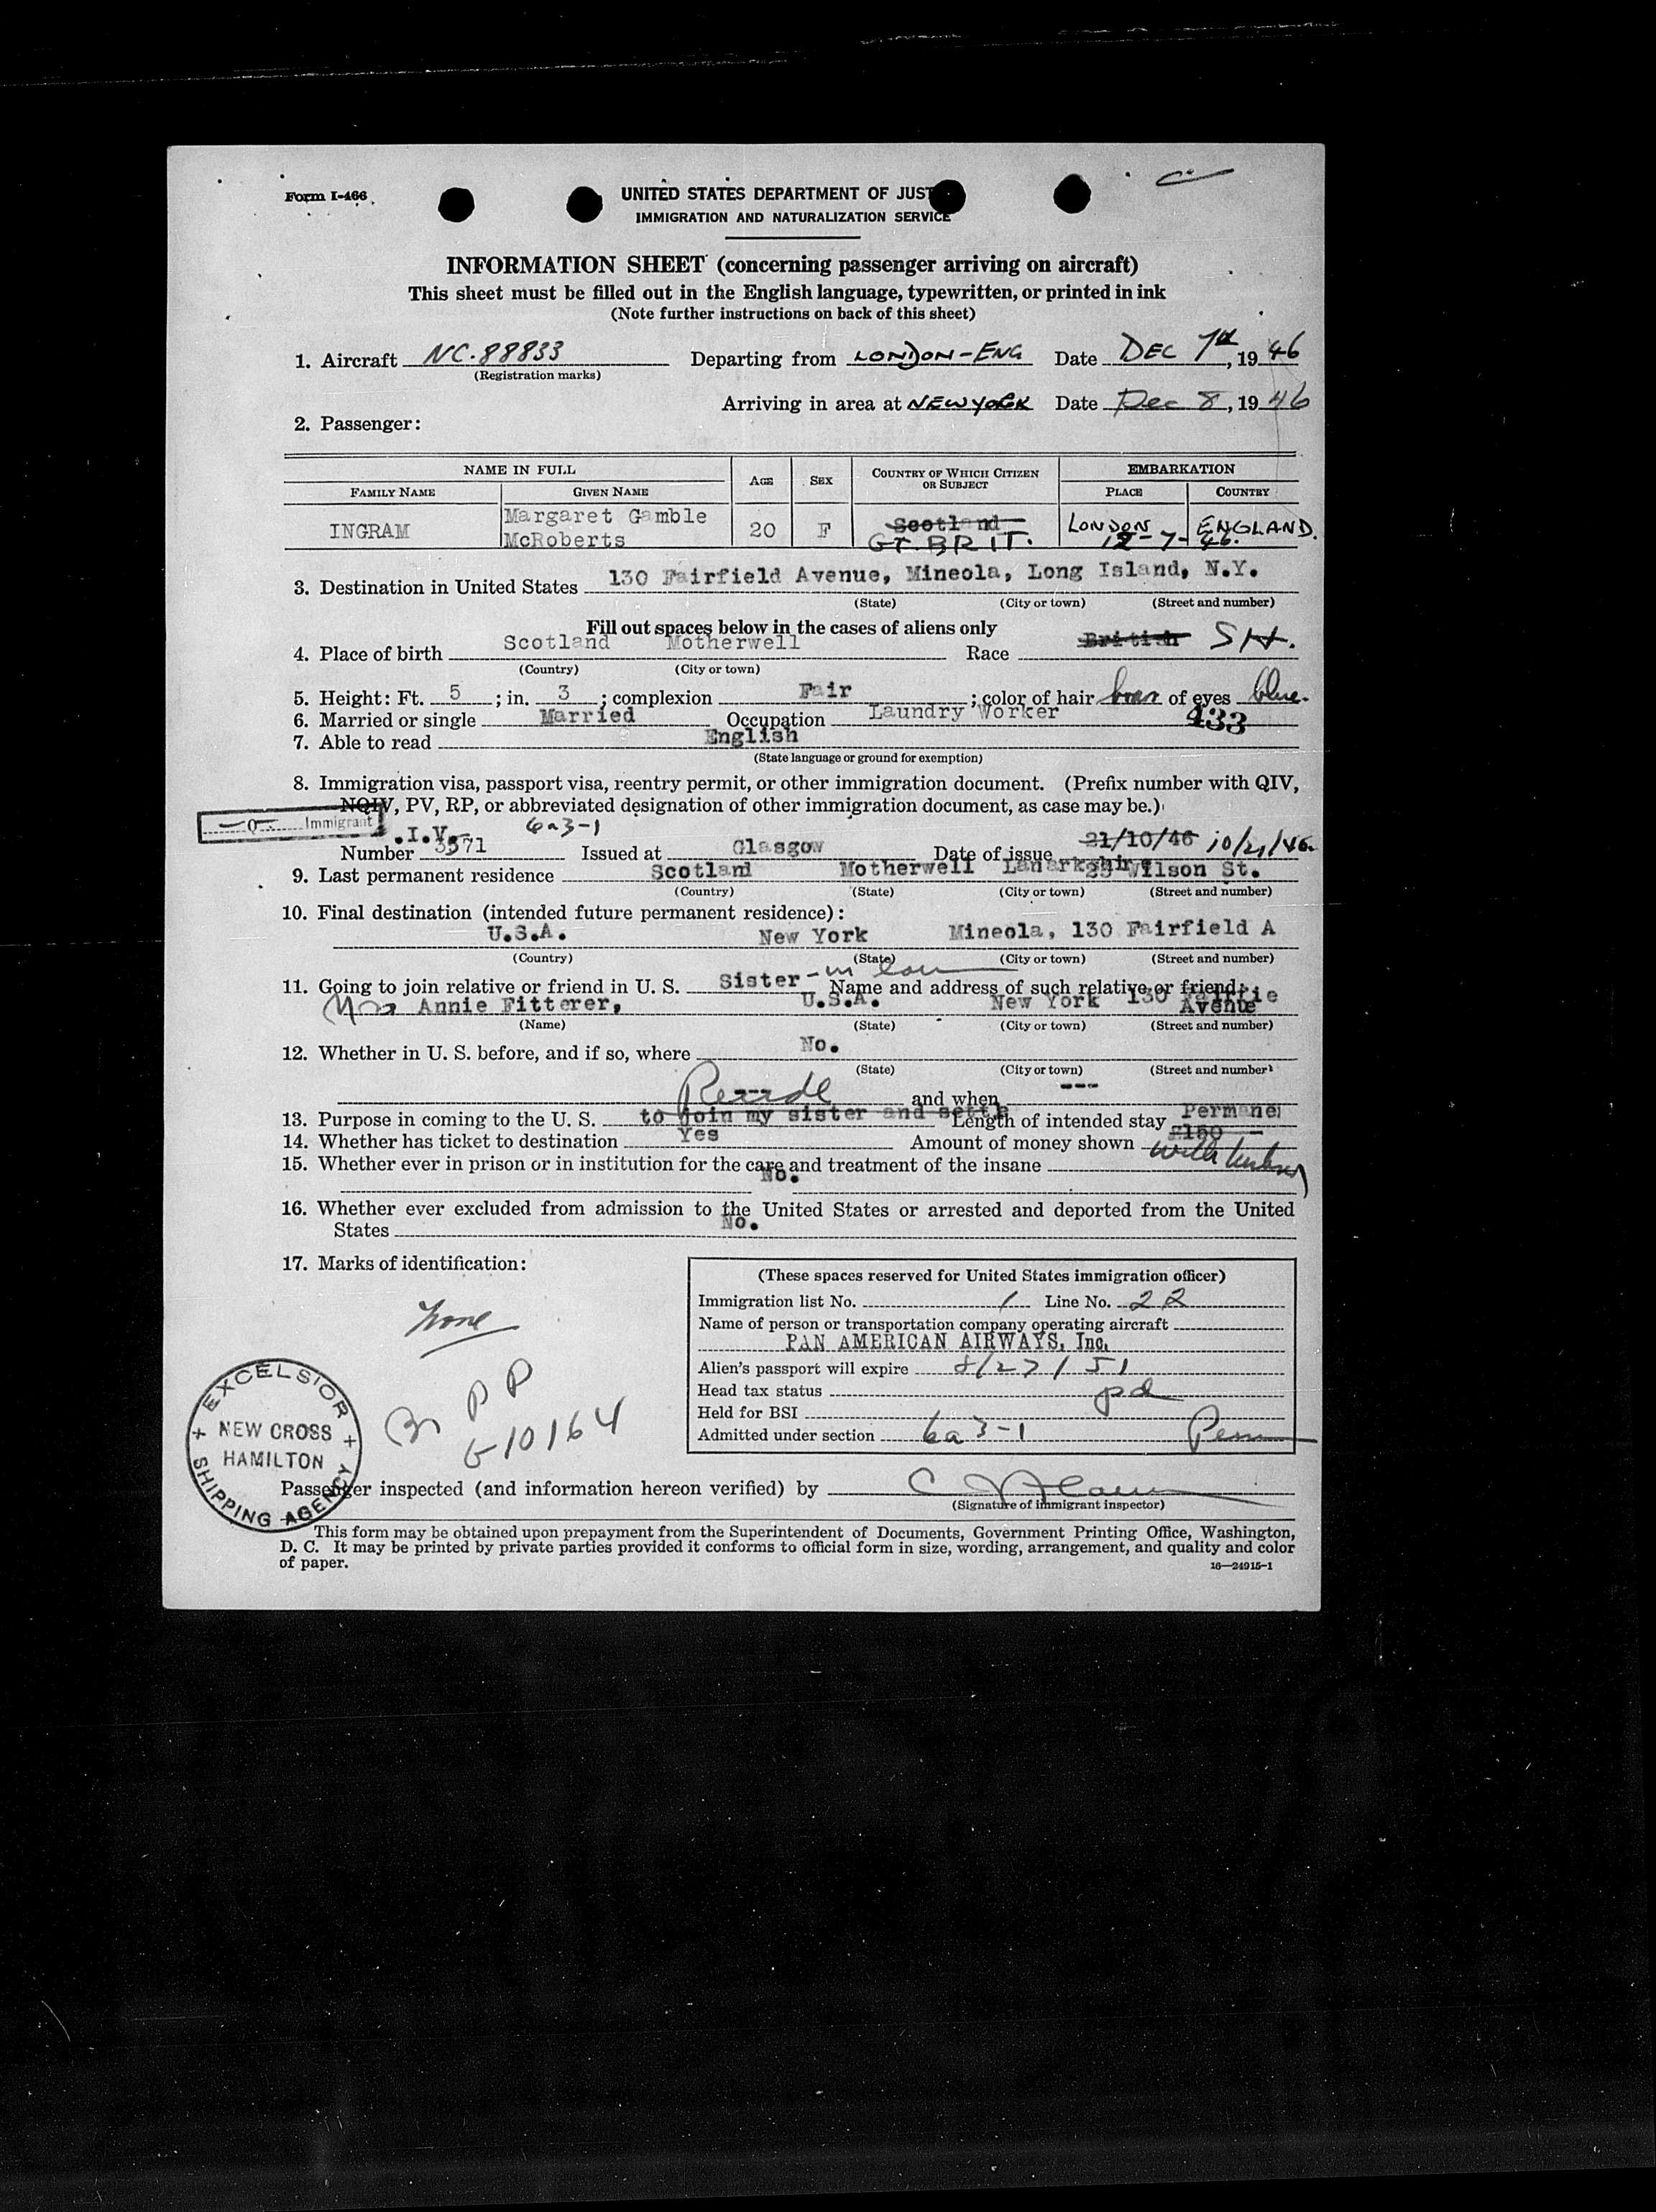 Form I-466
UNITED STATES DEPARTMENT OF JUST
IMMIGRATION AND NATURALIZATION SERVICE
INFORMATION SHEET (concerning passenger arriving on aircraft)
This sheet must be filled out in the English language, typewritten, or printed in ink
(Note further instructions on back of this sheet)
1. Aircraft NC-88833 Departing from LONDON-ENG Date DEC 7th, 1946
(Registration marks)
Arriving in area at NEW YORK Date Dec 8, 1946
2. Passenger:
NAME IN FULL AGE SEX COUNTRY OF WHICH CITIZEN OR SUBJECT EMBARKATION
FAMILY NAME GIVEN NAME PLACE COUNTRY
INGRAM Margaret Gamble McRoberts 20 F Scotland GT. BRIT. LONDON ENGLAND.
12-7-46.
3. Destination in United States 130 Fairfield Avenue, Mineola, Long Island, N.Y.
(State) (City or town) (Street and number)
Fill out spaces below in the cases of aliens only
4. Place of birth Scotland Motherwell Race British SH.
(Country) (City or town)
5. Height: Ft. 5; in. 3; complexion Fair; color of hair brown of eyes blue.
6. Married or single Married Occupation Laundry Worker 433
7. Able to read English
(State language or ground for exemption)
8. Immigration visa, passport visa, reentry permit, or other immigration document. (Prefix number with QIV,
NQIV, PV, RP, or abbreviated designation of other immigration document, as case may be.)
Q Immigrant
.I.V. 6a3-1
Number 3571 Issued at Glasgow Date of issue 21/10/46 10/21/46
9. Last permanent residence Scotland Motherwell Lanarkshire 25 Wilson St.
(Country) (State) (City or town) (Street and number)
10. Final destination (intended future permanent residence):
U.S.A. New York Mineola, 130 Fairfield A
(Country) (State) (City or town) (Street and number)
11. Going to join relative or friend in U. S. Sister-in law Name and address of such relative or friend:
Mrs Annie Fitterer, U.S.A. New York 130 Fairfie
Avenue
(Name) (State) (City or town) (Street and number)
12. Whether in U. S. before, and if so, where No.
(State) (City or town) (Street and number)
--- and when ---
13. Purpose in coming to the U. S. Reside to join my sister and settle Length of intended stay Permanen
14. Whether has ticket to destination Yes Amount of money shown £150 with husband
15. Whether ever in prison or in institution for the care and treatment of the insane
No.
16. Whether ever excluded from admission to the United States or arrested and deported from the United
States No.
17. Marks of identification:
None
Br PP
G10164
EXCELSIOR SHIPPING AGENCY
NEW CROSS
HAMILTON
(These spaces reserved for United States immigration officer)
Immigration list No. 1 Line No. 22
Name of person or transportation company operating aircraft
PAN AMERICAN AIRWAYS, Inc.
Alien's passport will expire 8/27/51
Head tax status pd
Held for BSI
Admitted under section 6a 3-1 Perm
Passenger inspected (and information hereon verified) by
(Signature of immigrant inspector)
This form may be obtained upon prepayment from the Superintendent of Documents, Government Printing Office, Washington,
D. C. It may be printed by private parties provided it conforms to official form in size, wording, arrangement, and quality and color
of paper.
16—24915-1